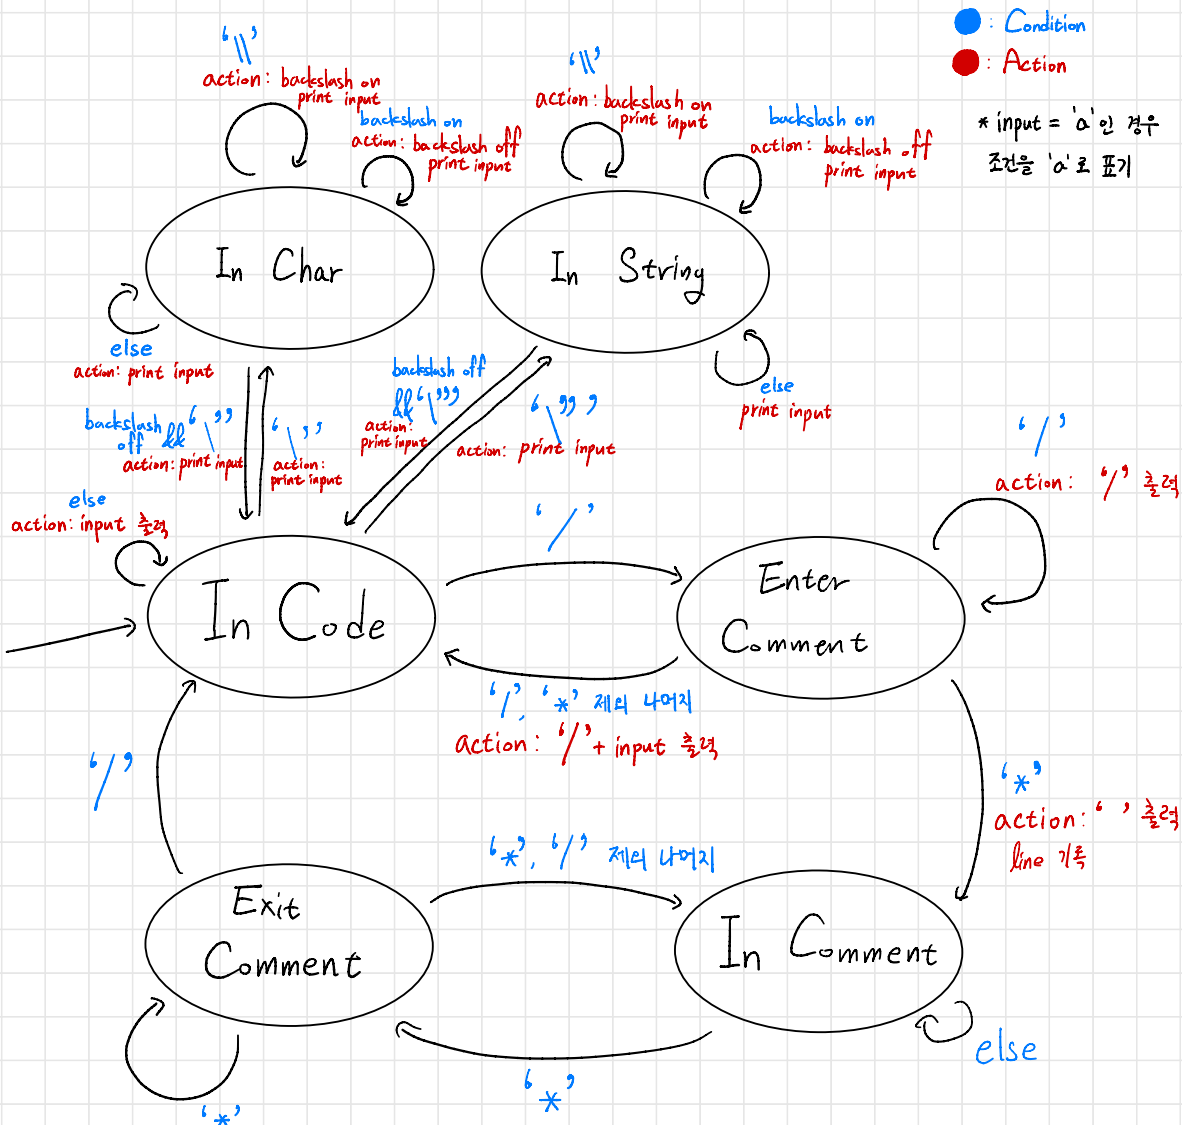 : Condition
: Action
* input = 'a'인 경우
조건을 'a'로 표기
'\\'
action: backslash on
print input
backslash on
action: backslash off
print input
In Char
else
action: print input
'\\'
action: backslash on
print input
backslash on
action: backslash off
print input
In String
else
print input
backslash
off && '\''
action: print input
'\''
action:
print input
backslash off
&& '\"'
action:
print input
'\"'
action: print input
else
action: input 출력
In Code
'/'
Enter
Comment
'/'
action: '/' 출력
'/', '*' 제외 나머지
action: '/' + input 출력
'*'
action: ' ' 출력
line 기록
'/'
Exit
Comment
'*', '/' 제외 나머지
In Comment
else
'*'
'*'